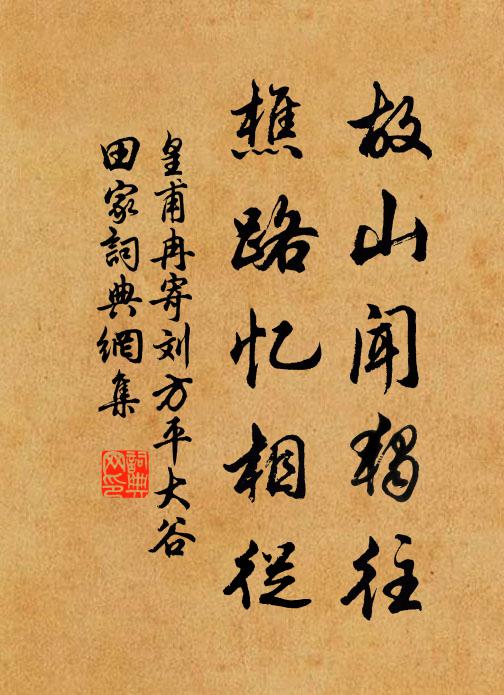 故山闻独往
樵路忆相從
皇甫冉寄刘方平大谷
田家詞典網集
詞典
网印